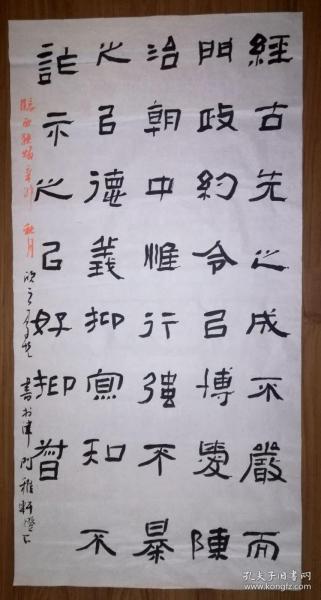 經古先之成不嚴而
門政約令㠯博愛陳
治朝中惟行強不暴
之㠯德義抑寡知不
詐示之㠯好抑督
臨西狹頌 辛卯 秋月
書於津門雅軒燈下
孔夫子旧书网